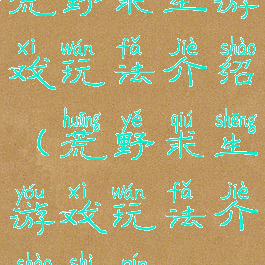 荒野求生游
xì wán fǎ jiè shào
戏玩法介绍
huāng yě qiú shēng
（荒野求生
yóu xì wán fǎ jiè
游戏玩法介
shào shì pín